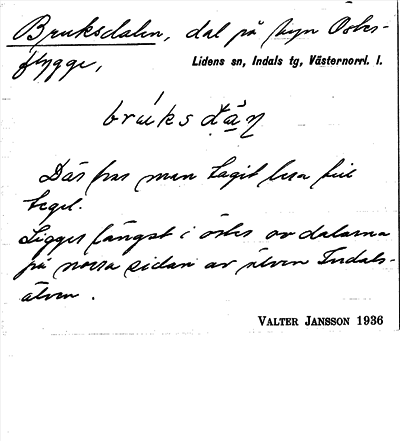 Bruksdalen, dal på byn Öster-
flygge,
Lidens sn, Indals tg, Västernorrl. l.
brúksdạ̈n
Där har man tagit lera till
tegel.
Ligger längst i öster av dalarna
på norra sidan av älven Indals-
älven.
VALTER JANSSON 1936